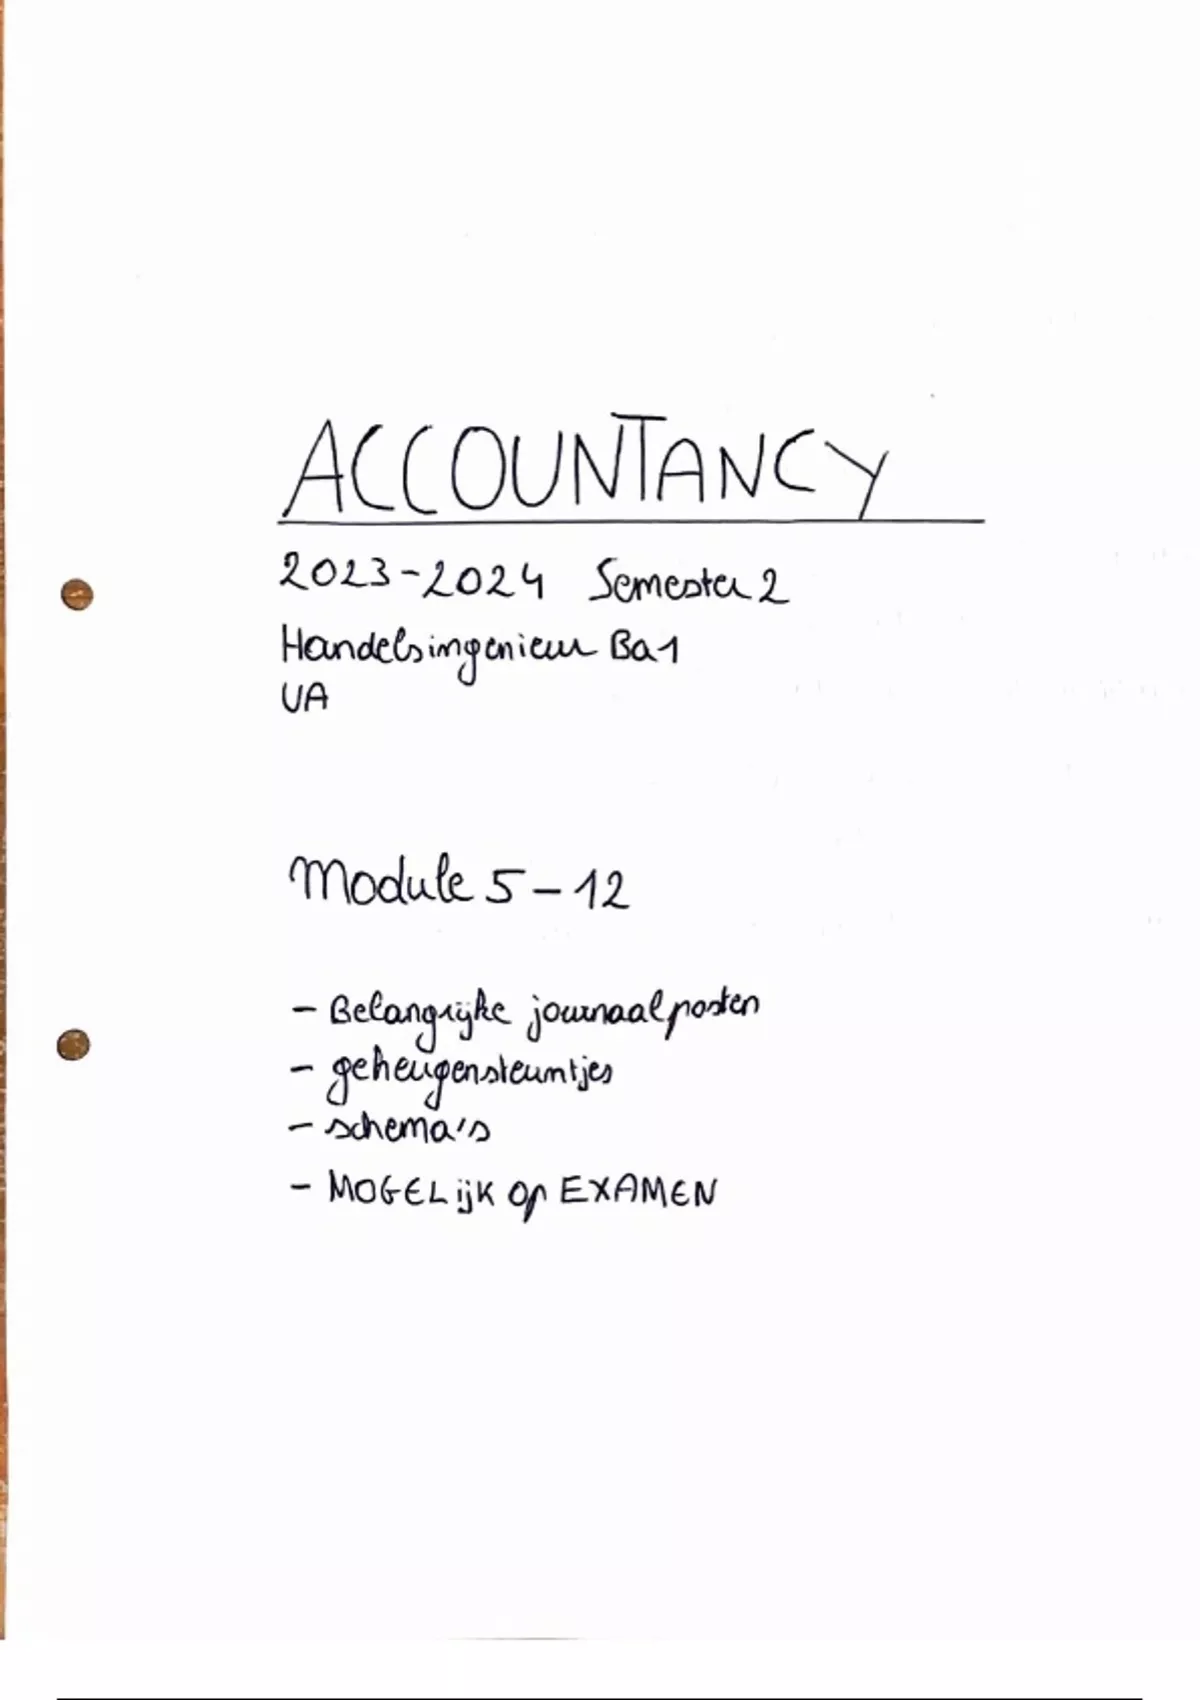 ACCOUNTANCY
2023-2024 Semester 2
Handelsingenieur Ba1
UA
Module 5-12
- Belangrijke journaalposten
- geheugensteuntjes
- schema's
- MOGELijK op EXAMEN